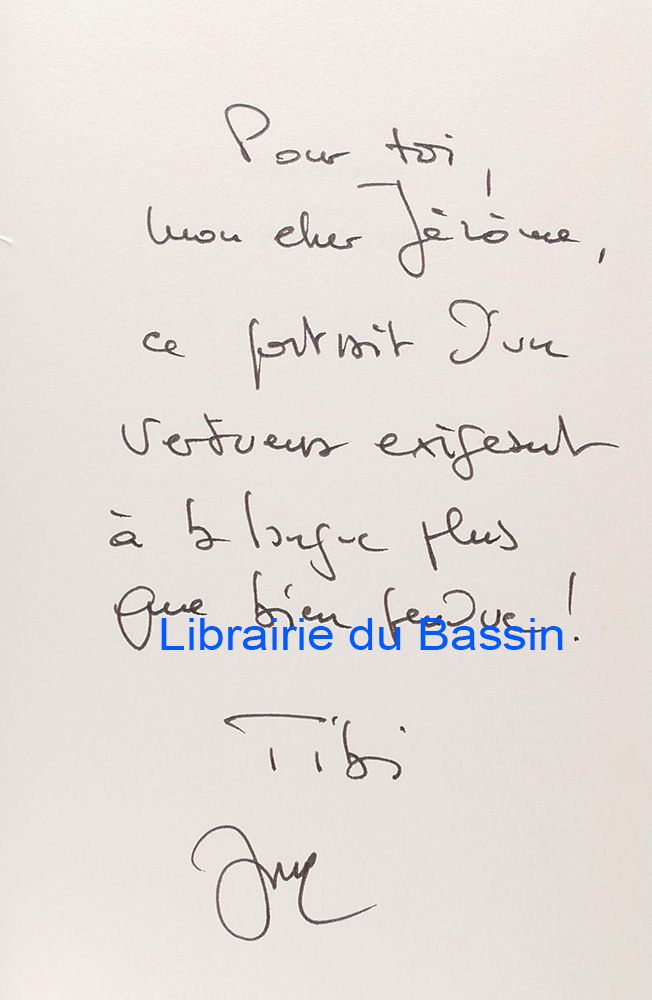 Pour toi,
mon cher Jérôme,
ce portrait d'un
vertueux exigeant
à la langue plus
que bien pendue !
Librairie du Bassin
Tibi